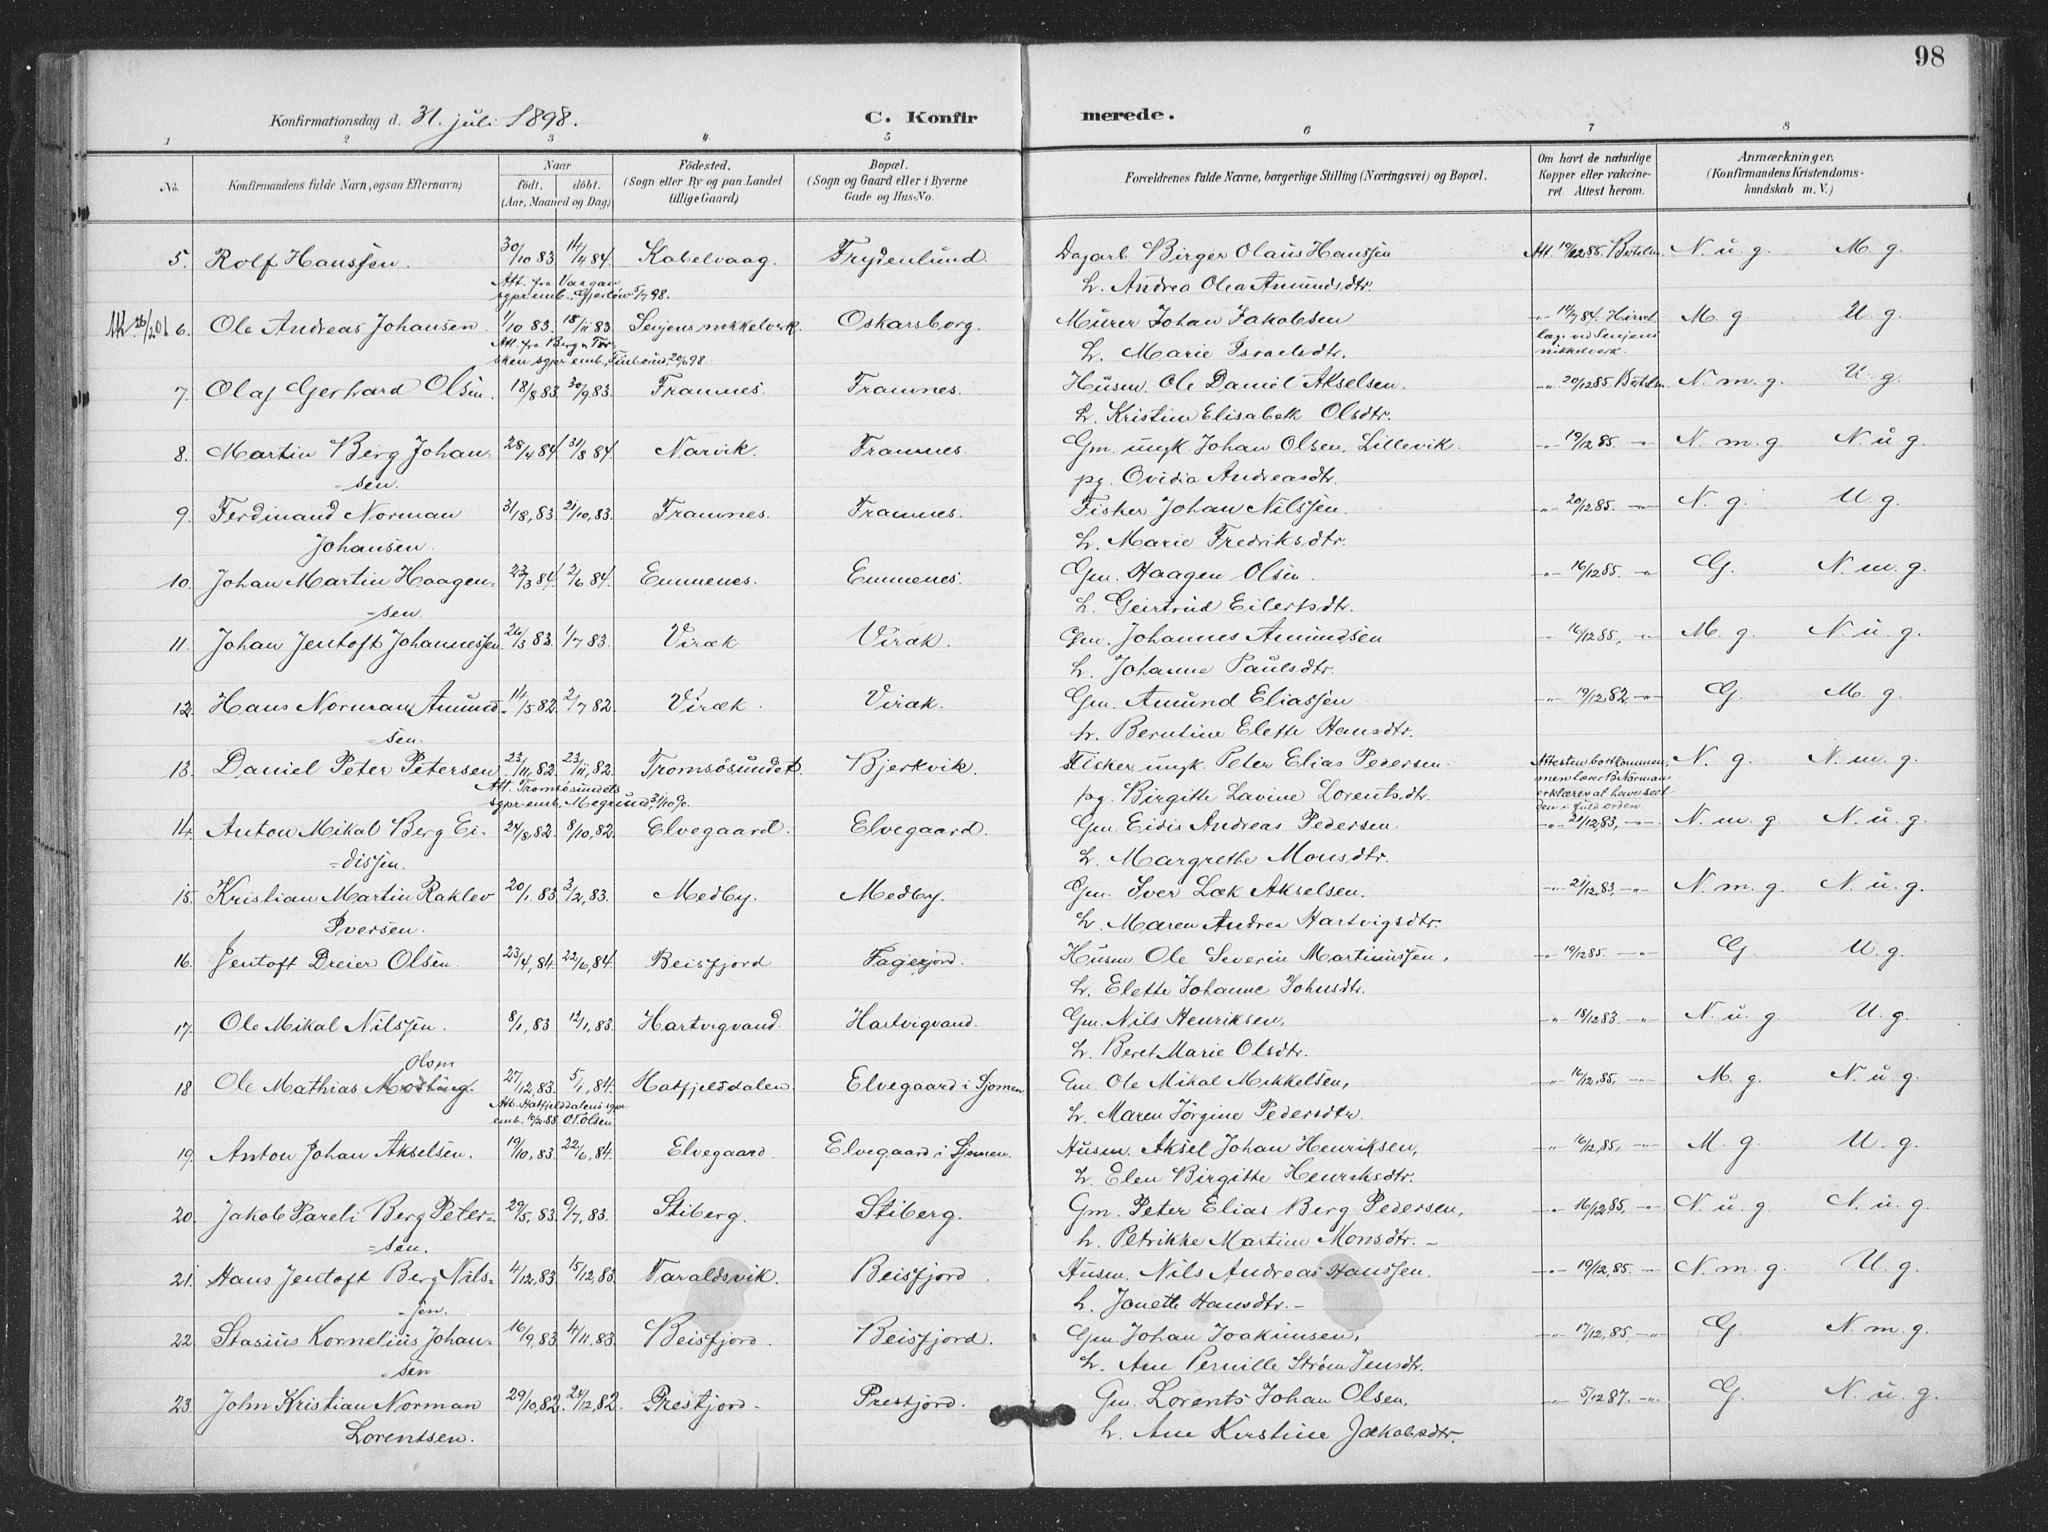 98
Konfirmationsdag d. 31. juli 1898. C. Konfir merede.
1 2 3 4 5 6 7 8
No. Konfirmandens fulde Navn, ogsaa Efternavn) Naar födt. döbt. (Aar, Maaned og Dag) Födested. (Sogn eller By og paa Landet tillige Gaard) Bopæl. (Sogn og Gaard eller i Byerne Gade og Hus-No. Forældrenes fulde Navne, borgerlige Stilling (Næringsvei) og Bopæl. Om havt de naturlige Kopper eller vakcineret. Attest herom. Anmærkninger. (Konfirmandens Kristendomskundskab m. V.)
5. Rolf Hanssen. 30/10 83 14/4 84 Kabelvaag. Frydenlund. Dagarb. Birger Olaus Hanssen Att. 19/12 85 N. u. g. M. g.
Att. fra Vaagan h. Andrea Olea Amundsdtr.
sgpr.emb. 5/7 98.
6. Ole Andreas Johansen. 1/10 83. 18/11 83 Senjens nikkelverk Oskarsborg. Murer Johan Jakobsen 14/7 84. M. g U. g.
Att. fra Berg o Tor- h. Marie Israelsdtr. læge ved Senjens
sken sgpr.emb. 20/6 98 nikkelverk.
7. Olaf Gerhard Olsen. 18/8 83. 30/9 83. Framnes. Framnes. Husm. Ole Daniel Akselsen. -"- 20/12 85 N. m. g. U. g.
h. Kristine Elisabeth Olsdtr.
8. Martin Berg Johan 28/4 84 31/8 84. Narvik. Framnes. Gm. ungk. Johan Olsen, Lillevik. -"- 19/12 85. -"- N. m. g N. u. g
=sen. pg. Ovidia Andreasdtr.
9. Ferdinand Norman 31/8, 83. 21/10, 83. Framnes. Framnes. Fisker Johan Nilssen. -"- 20/12 85. -"- N. g. U. g.
Johansen. h. Marie Fredriksdtr.
10. Johan Martin Haagen= 23/3 84. 2/6 84. Emmenes. Emmenes. Gm. Haagen Olsen -"- 16/12 85. -"- G. N. m. g.
=sen. h. Geirtrud Eilertsdtr.
11. Johan Jentoft Johannessen. 26/3 83. 1/7 83. Viræk Viræk. Gm. Johannes Amundsen -"- 16/12 85, -"- M. g. N. u. g.
h. Johanne Paulsdtr.
12. Hans Norman Amund= 14/5 82. 2/7 82. Viræk. Viræk. Gm. Amund Eliassen -"- 19/12, 82, -"- G. M. g.
=sen. h. Berntine Elette Hansdtr.
13. Daniel Peter Petersen 22/11, 82. 23/11, 82. Tromsösundet. Bjerkvik. Fisker ungk. Peter Elias Pedersen. Attesten bortkommen, N. g. N. m. g.
Att. Tromsösundets pg. Birgitte Lavine Lorentsdtr. men lærer B. Norman
sgpr.emb. erklærer at have seet
den i fuld orden.
14. Anton Mikal Berg Ei= 24/8, 82. 8/10, 82. Elvegaard. Elvegaard. Gm. Eidis Andreas Pedersen. -"- 21/12, 83, -"- N. m. g. N. u. g.
=dissen. h. Margrethe Monsdtr.
15. Kristian Martin Raklev 20/1, 83. 3/2, 83. Medby. Medby. Gm. Iver Læk Akselsen. -"- 21/12, 83, -"- N. m. g. N. u. g.
Iversen. h. Maren Andrea Hartvigsdtr.
16. Jentoft Dreier Olsen. 23/4, 84. 22/6, 84. Beisfjord Fagerjord. Husm Ole Severin Martinussen, -"- 19/12 85. -"- G. U. g.
h. Elette Johanne Johnsdtr.
17. Ole Mikal Nilssen. 8/1, 83 12/1, 83. Hartvigvand. Hartvigvand. Gm. Nils Henriksen, -"- 18/12 83. -"- N. u. g. U. g.
h. Beret Marie Olsdtr.
Olsen
18. Ole Mathias 27/12, 83. 5/1, 84. Hatfjelddalen. Elvegaard i Sjomen Gm. Ole Mikal Mikkelsen, -"- 16/12, 85, -"- M. g. N. u. g.
Att. Hatfjelddalens sgpr. h. Maren Jörgine Pedersdtr.
emb. O. Olsen.
19. Anton Johan Akselsen. 19/10, 83. 22/6, 84. Elvegaard. Elvegaard i Sjomen. Husm. Aksel Johan Henriksen, -"- 16/12, 85, -"- M. g. U. g.
h. Elen Birgitte Henriksdtr.
20. Jakob Pareli Berg Peter= 29/5, 83. 9/7, 83. Stiberg. Stiberg. Gm. Peter Elias Berg Pedersen, -"- 16/12, 85, -"- N. u. g. N. u. g.
=sen. h. Petrikke Martine Monsdtr. -
21. Hans Jentoft Berg Nils= 4/12, 83. 15/12, 83. Taraldsvik. Beisfjord. Husm. Nils Andreas Hanssen. -"- 19/12, 85. -"- N. m. g. U. g.
=sen. h. Jonette Hansdtr. -
22. Stasius Kornelius Johan= 16/9, 83. 4/11, 83. Beisfjord. Beisfjord. Gm Johan Joakimsen, -"- 17/12, 85 -"- G. N. m. g.
=sen h. Ane Pernille Ström Jensdtr.
23. John Kristian Norman 29/10, 82. 24/12, 82. Prestjord. Prestjord. Gm. Lorents Johan Olsen, -"- 5/12 87. -"- G. N. u. g.
Lorentsen. h. Ane Kirstine Jakobsdtr.